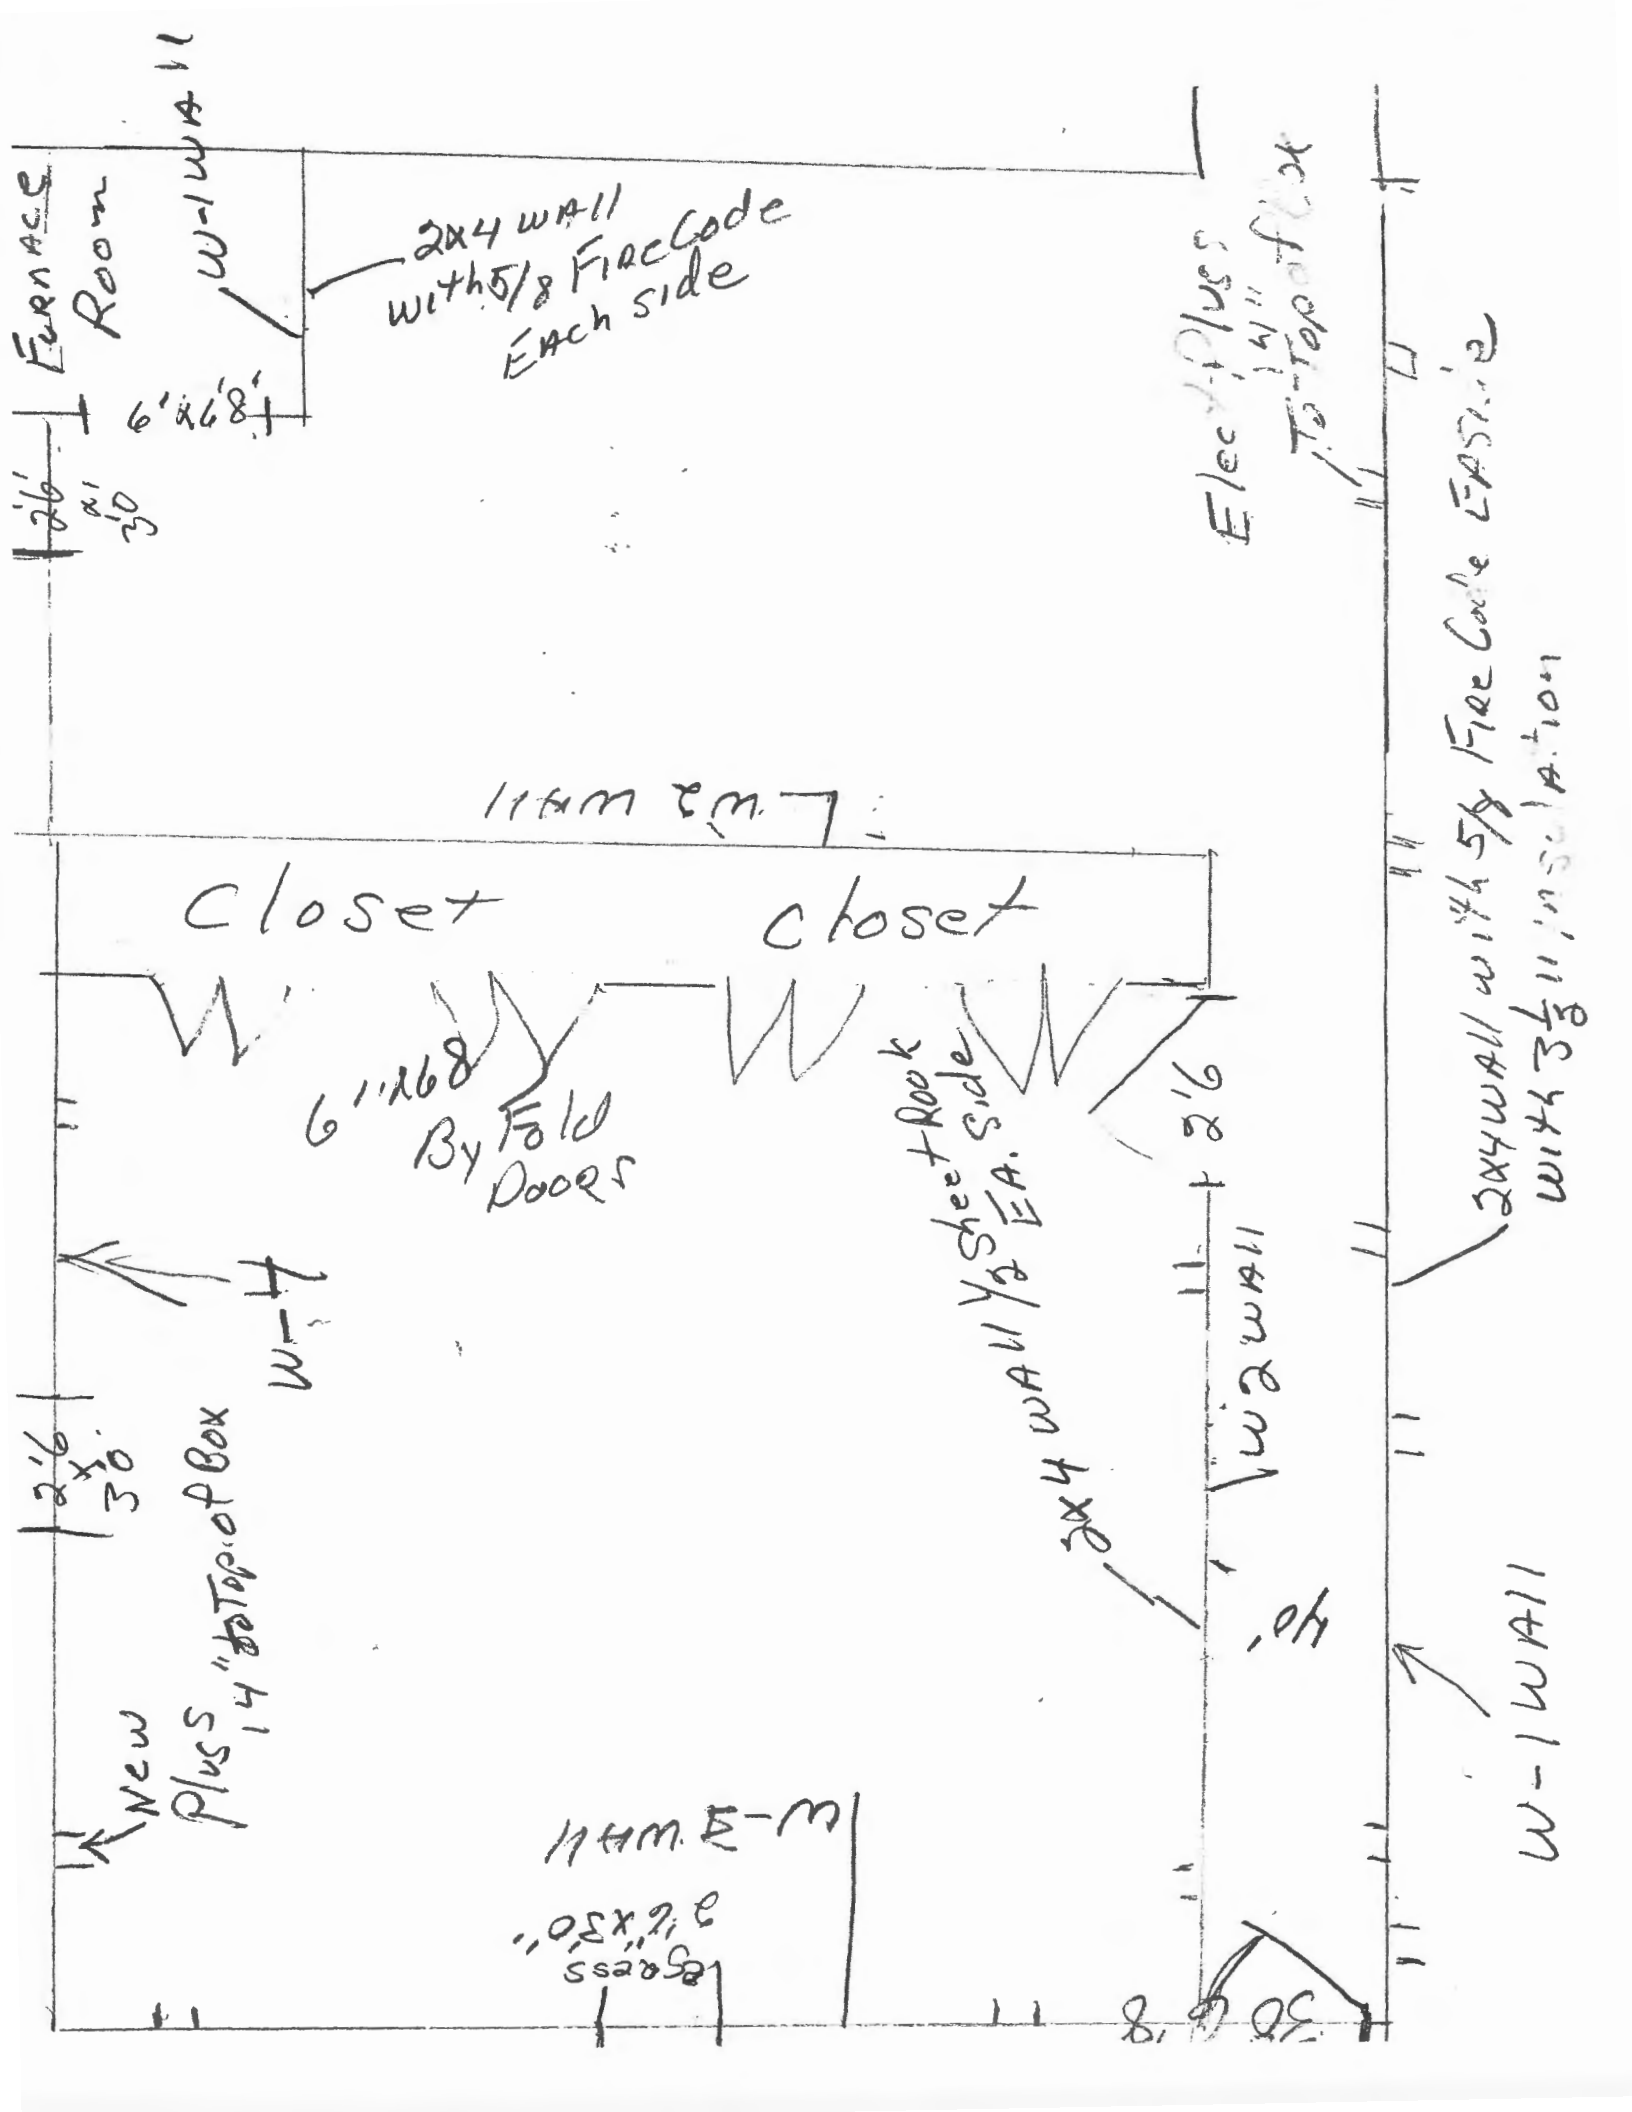 Furnace
Room
W-1 WAll
2x4 WAll
with 5/8 Fire Code
EAch side
6'x6'8"
2'6"
x
3'0
Elec Plugs
14"
To Top of Box
W2 WAll
Closet
Closet
6''x68
By Fold
Doors
2x4 WAll 1/2 Sheet Rook
EA. Side
2'6
W2WAll
40"
2x4 WAll with 5/8 Fire Code
with 3 1/2" insulation
W-1 WAll
W-4
2'6
x
30"
New
Plugs
14" to Top of Box
W-3 WAll
2'6"x3'0"
egress
30 6'8